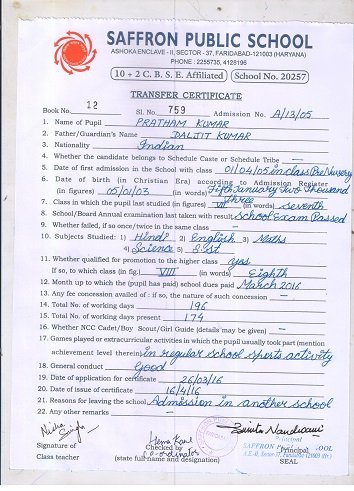 SAFFRON PUBLIC SCHOOL
ASHOKA ENCLAVE - II, SECTOR - 37, FARIDABAD-121003 (HARYANA)
PHONE : 2255735, 4128196
10 + 2 C. B. S. E. Affiliated School No. 20257
TRANSFER CERTIFICATE
Book No. 12 Sl. No. 759 Admission No. A/13/05
1. Name of Pupil PRATHAM KUMAR
2. Father/Guardian's Name DALJIT KUMAR
3. Nationality Indian
4. Whether the candidate belongs to Schedule Caste or Schedule Tribe —
5. Date of first admission in the School with class 01/04/05 in class Pre Nursery
6. Date of birth (in Christian Era) according to Admission Register
(in figures) 05/01/03 (in words) Fifth January Two Thousand Three
7. Class in which the pupil last studied (in figures) VII (in words) Seventh
8. School/Board Annual examination last taken with result School Exam Passed
9. Whether failed, if so once/twice in the same class —
10. Subjects Studied: 1) Hindi 2) English 3) Maths
4) Science 5) S.St
11. Whether qualified for promotion to the higher class yes
If so, to which class (in fig.) VIII (in words) Eighth
12. Month up to which the (pupil has paid) school dues paid March 2016
13. Any fee concession availed of : if so, the nature of such concession —
14. Total No. of working days 196
15. Total No. of working days present 174
16. Whether NCC Cadet/Boy Scout/Girl Guide (details may be given) —
17. Games played or extracurricular activities in which the pupil usually took part (mention
achievement level therein) in regular school sports activity
18. General conduct Good
19. Date of application for certificate 26/03/16
20. Date of issue of certificate 16/4/16
21. Reasons for leaving the school Admission in another school
22. Any other remarks —
Signature of Checked by Principal
Class teacher (state full name and designation) SEAL